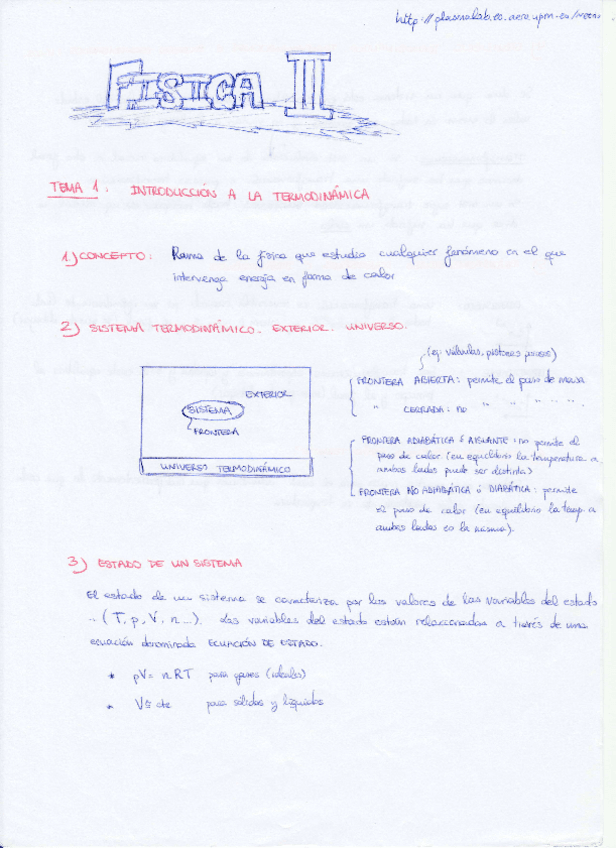 http://plasmalab.
FISICA II
TEMA 1. INTRODUCCIÓN A LA TERMODINÁMICA
1) CONCEPTO: Rama de la física que estudia cualquier fenómeno en el que
intervenga energía en forma de calor
2) SISTEMA TERMODINÁMICO. EXTERIOR. UNIVERSO.
(ej: válvulas, pistones)
EXTERIOR
SISTEMA
FRONTERA
UNIVERSO TERMODINÁMICO
FRONTERA ABIERTA: permite el paso de masa
" CERRADA: no " " " " "
FRONTERA ADIABÁTICA ó AISLANTE: no permite el
paso de calor (en equilibrio la temperatura a
ambos lados puede ser distinta)
FRONTERA NO ADIABÁTICA ó DIABÁTICA: permite
el paso de calor (en equilibrio la temp a
ambos lados es la misma).
3) ESTADO DE UN SISTEMA
El estado de un sistema se caracteriza por los valores de las variables del estado
.. (T, p, V, n ...). Las variables del estado están relacionadas a través de una
ecuación denominada ECUACIÓN DE ESTADO.
* pV = nRT para gases (ideales)
* V≅ cte para sólidos y líquidos